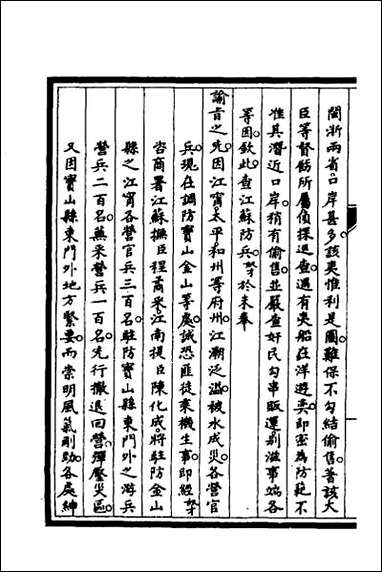 閩浙兩省。口岸甚多。該夷惟利是圖。難保不勾結偷售。著該大
臣等督飭所屬偵探巡查。遇有夷船在洋遊奕。即密為防範。不
准其潛近口岸。稍有偷售。並嚴查奸民勾串販運。別滋事端。各
等因。欽此。查江蘇防兵。奴才於未奉
諭旨之先。因江甯。太平。和州等府州。江潮泛溢。被水成災。各營官
兵。現在調防寶山金山等處。誠恐匪徒乘機生事。即經奴才
咨商署江蘇撫臣程矞采。江南提臣陳化成。將駐防金山
縣之江甯各營官兵三百名。駐防寶山縣東門外之游兵
營兵二百名。蕪采營兵一百名。先行撤退回營。彈壓災區。
又因寶山縣東門外地方緊要。而崇明風氣剛勁。各處紳